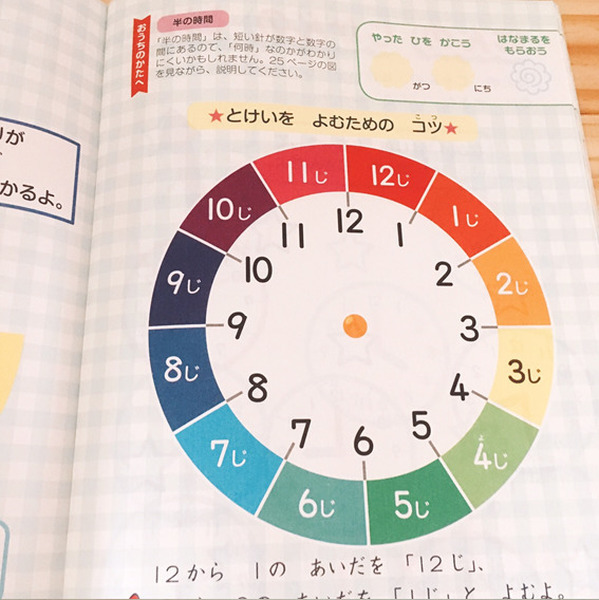 りが
かるよ。
おうちのかたへ
半の時間
「半の時間」は、短い針が数字と数字の
間にあるので、「何時」なのかがわかり
にくいかもしれません。25ページの図
を見ながら、説明してください。
やった ひを かこう
がつ にち
はなまるを
もらおう
★とけいを よむための コツ★
こつ
12じ
1じ
2じ
3じ
4じ
よ
5じ
6じ
7じ
8じ
9じ
10じ
11じ
12
1
2
3
4
5
6
7
8
9
10
11
12から 1の あいだを 「12じ」、
あいだを 「1じ」と よむよ。